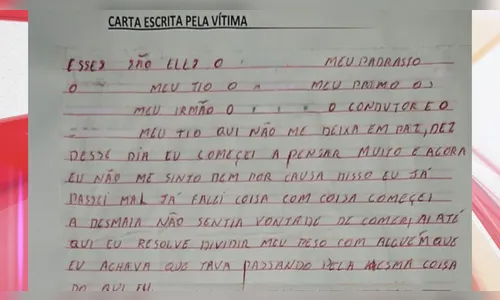 CARTA ESCRITA PELA VÍTIMA
ESSES SÃO ELES O MEU PADRASTO
O MEU TIO O MEU PRIMO O
MEU IRMÃO O O CONDUTOR E O
MEU TIO QUI NÃO ME DEIXA EM PAZ, DEZ
DESSE DIA EU COMEÇEI A PENSAR MUITO E AGORA
EU NÃO ME SINTO BEM POR CAUSA DISSO EU JÁ
PASSEI MAL JÁ FALEI COISA COM COISA COMEÇEI
A DESMAIA NÃO SENTIA VONTADE DE COMER, AI ATÉ
QUI EU RESOLVE DIVIDIR MEU PESO COM ALGUÉM QUE
EU ACHAVA QUE TAVA PASSANDO PELA MESMA COISA
DO QUI EU